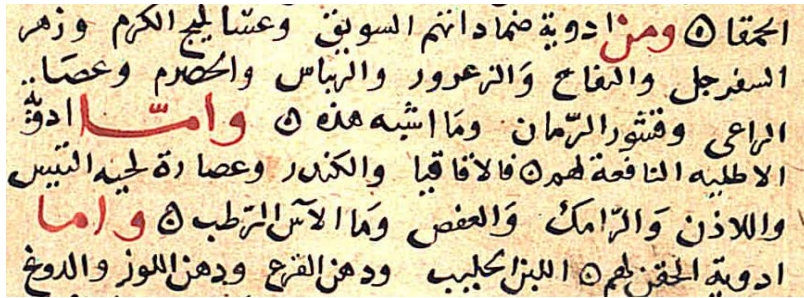 الحمقا ه ومن ادوية ضماداتهم السويق وعساليج الكرم وزهر
السفرجل والتفاح والزعرور والرياس والحصرم وعصا
الراعى وقشور الرمان وما اشبه هذه ه وامّا ادوية
الاطليه النافعة لهم ه فالاقاقيا والكندر وعصارة لحيه التيس
واللاذن والرّامك والعفص وما الآس الرّطب ه واما
ادوية الحقن لهم ه اللبن الحليب ودهن القرع ودهن اللوز والدوغ